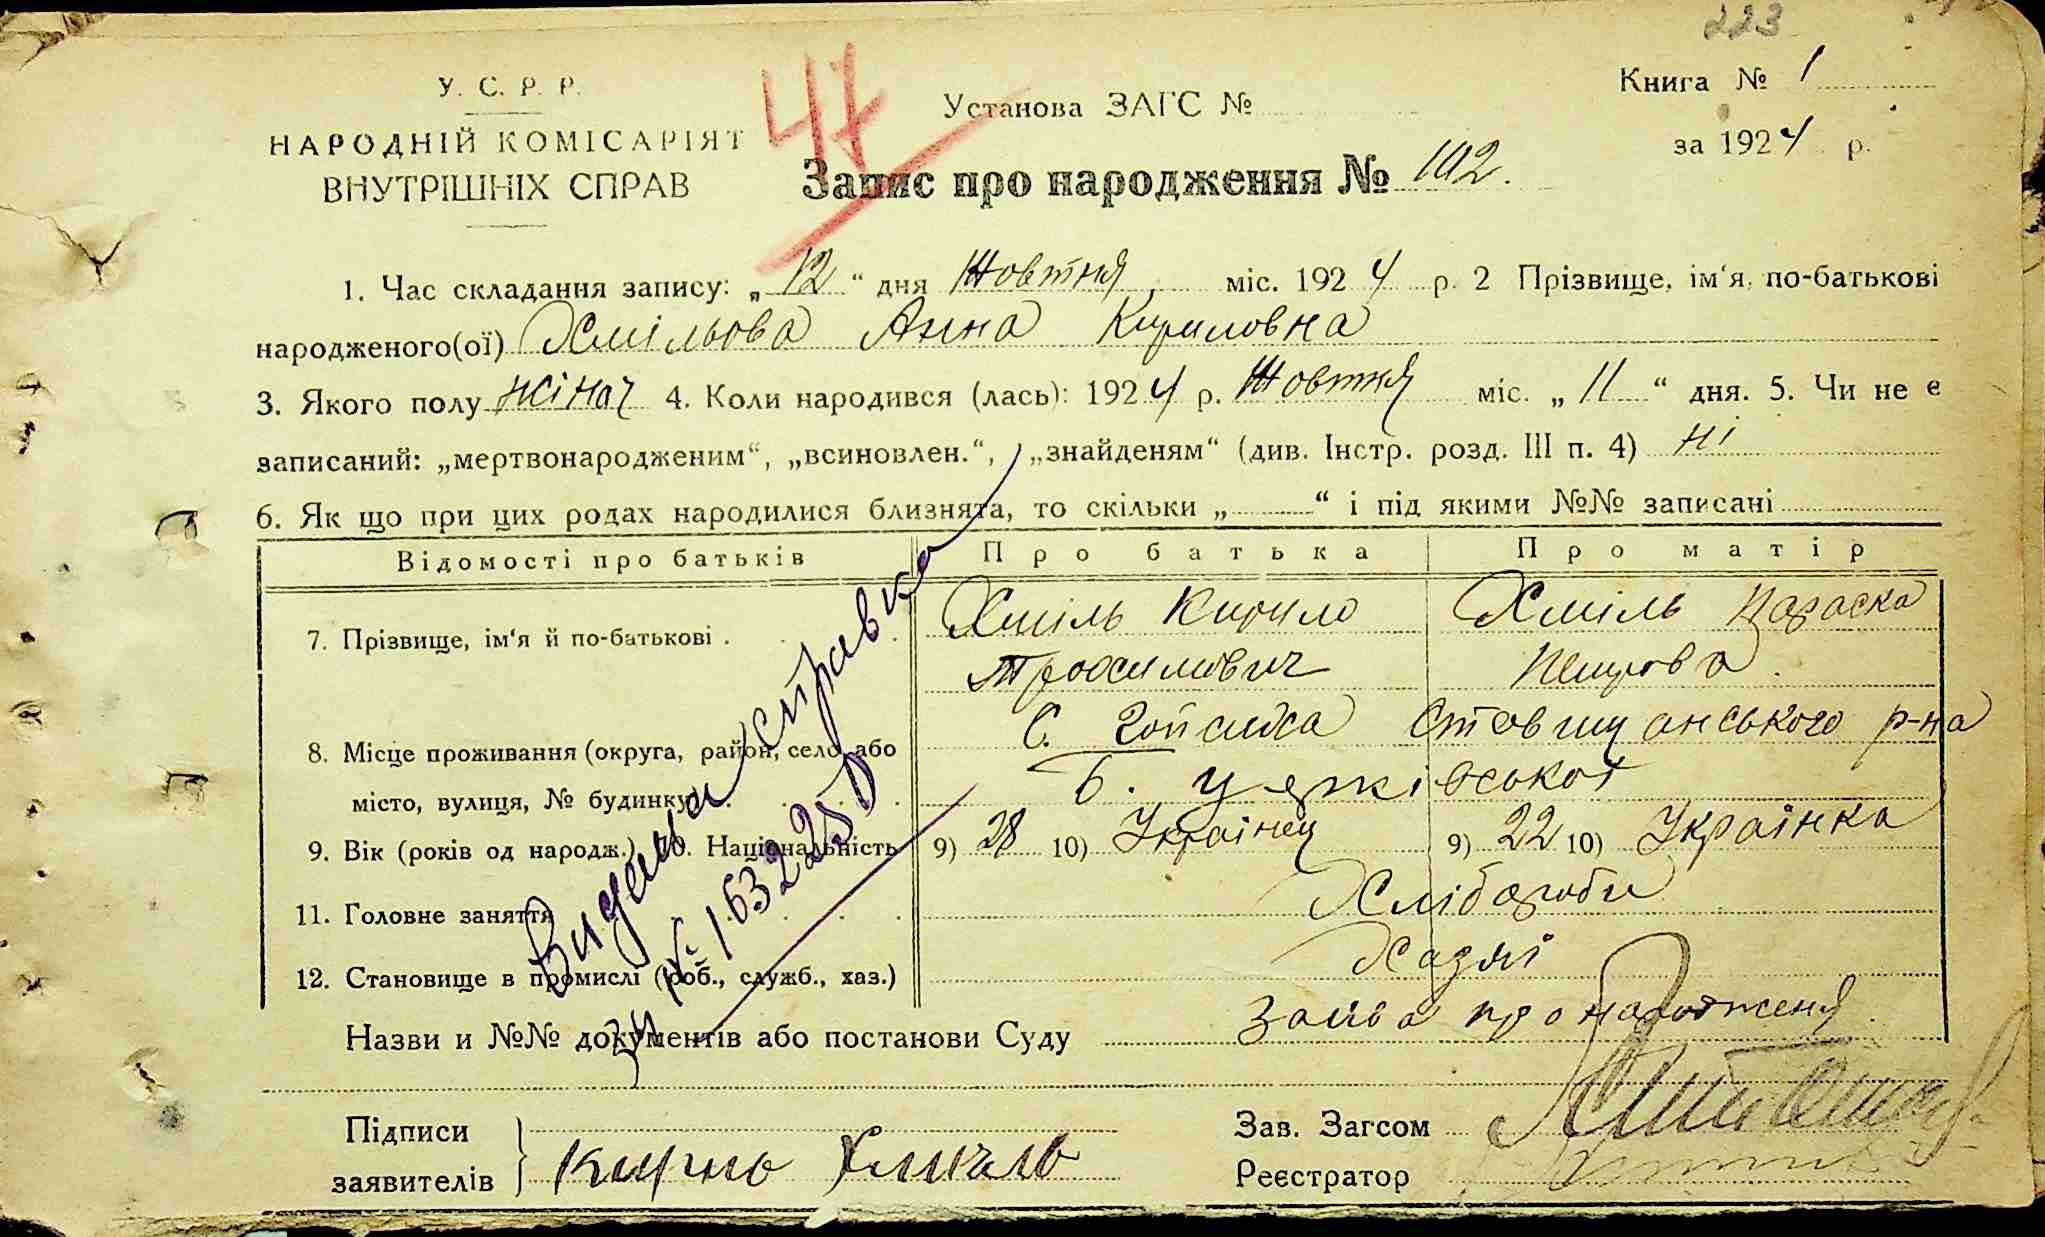 223
У. С. Р. Р.
НАРОДНІЙ КОМІСАРІЯТ
ВНУТРІШНІХ СПРАВ
47
Установа ЗАГС №
Книга № 1
за 1924 р.
Запис про народження № 102.
1. Час складання запису: „ 12 “ дня Жовтня міс. 1924 р. 2 Прізвище, ім‘я, по-батькові
народженого(ої) Хмільова Анна Кириловна
3. Якого полу жіноч 4. Коли народився (лась): 1924 р. Жовтня міс. „ 11 “ дня. 5. Чи не є
записаний: „мертвонародженим“, „всиновлен.“, „знайденям“ (див. Інстр. розд. III п. 4) ні
6. Як що при цих родах народилися близнята, то скільки „ “ і під якими №№ записані
Відомості про батьків Про батька Про матір
7. Прізвище, ім‘я й по-батькові . Хміль Кирило Хміль Параска
Трохимович Петрова.
8. Місце проживання (округа, район, село або С. Ставищанського р-на
місто, вулиця, № будинку) Б. Церківської
9. Вік (років од народж.) 10. Національність 9) 28 10) Українец 9) 22 10) Українка
11. Головне заняття Хлібороби
12. Становище в промислі (роб., служб., хаз.) Хазяї
Видана справка
за № 163225
Назви и №№ документів або постанови Суду Заява про народженя.
Підписи
заявителів Кирило Хміль
Зав. Загсом
Реєстратор